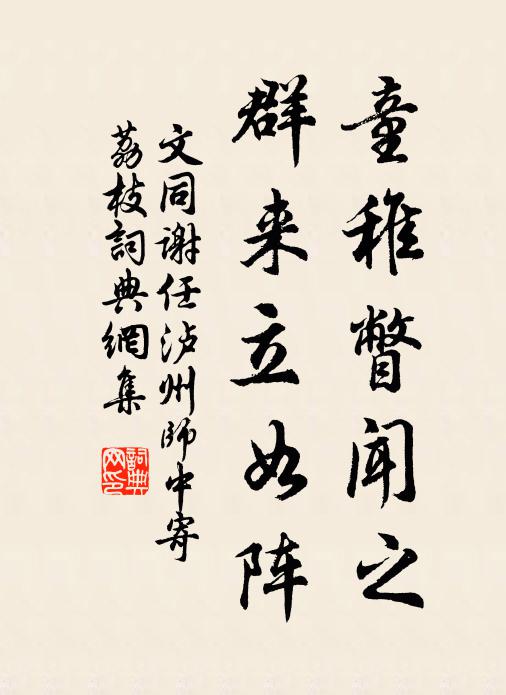 童稚瞥闻之
群来立如阵
文同谢任泸州师中寄
荔枝词典網集
詞典网印